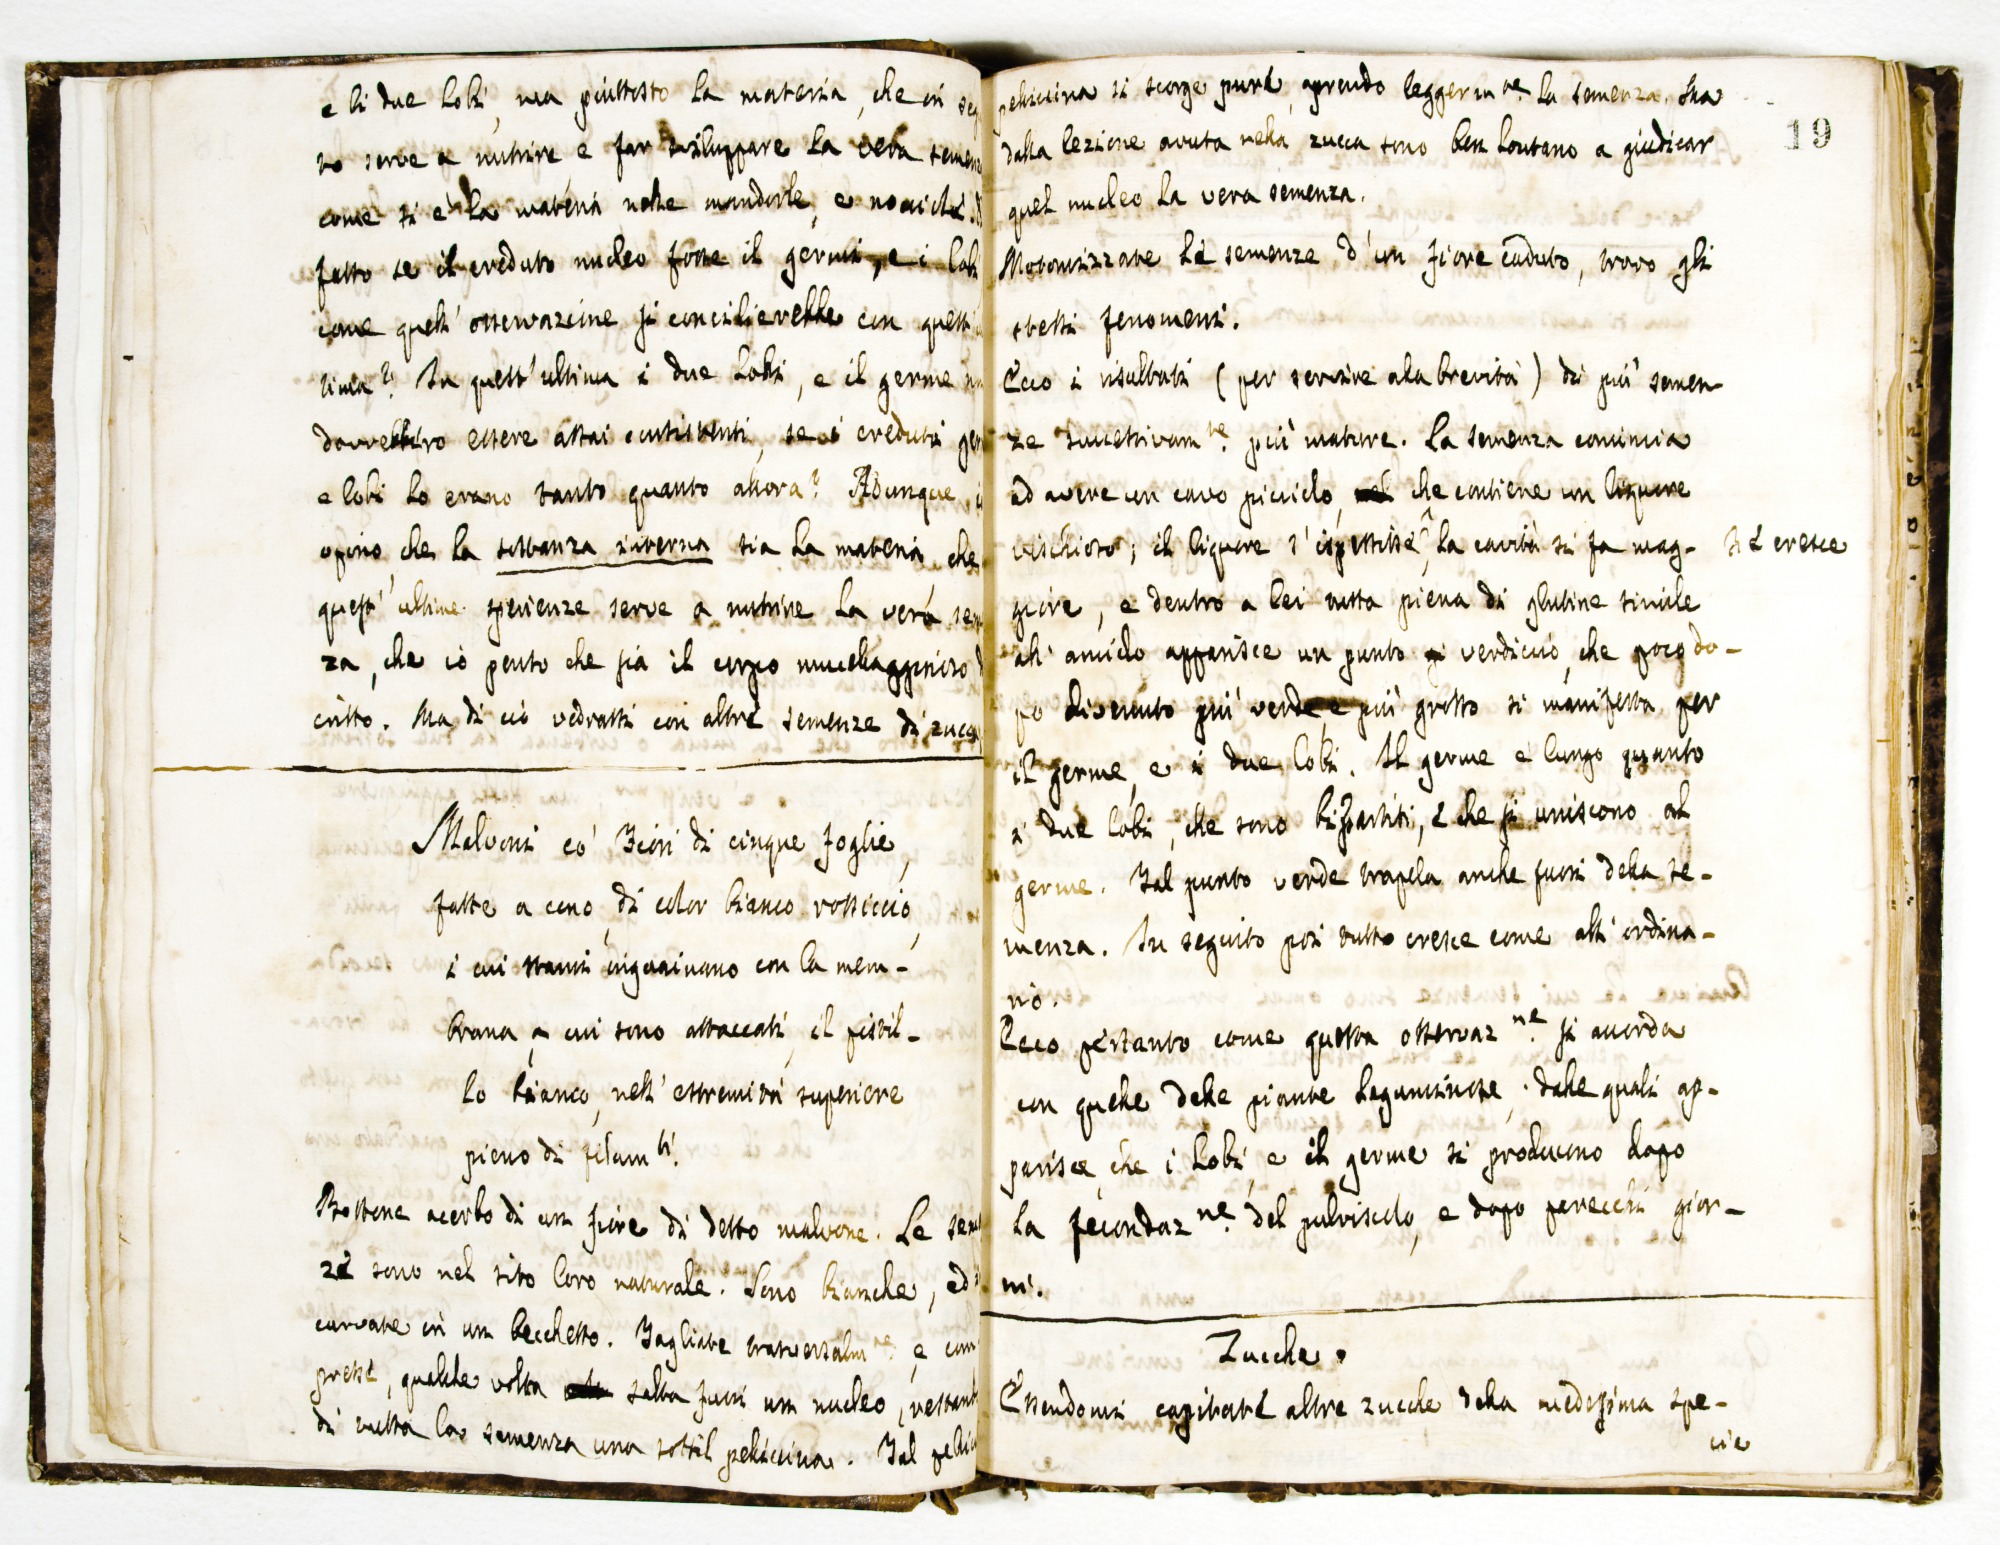 e li due lobi, ma piuttosto la materia, che in seg
to serve a nutrire e far sviluppare la vera semen
come si è la materia nelle mandorle, e nocciole.
fatto se il creduto nucleo fosse il germe, e i lobi
come quest' osservazione si concilierebbe con quest'
tima? In quest' ultima i due lobi, e il germe
dovrebbero essere assai consistenti, se i creduti ger
e lobi lo erano tanto quanto allora? Adunque
opino che la sostanza interna sia la materia che
quest' ultime sperienze serve a nutrire la vera sem
za, che io penso che sia il corpo muccellagginoso
critto. Ma di ciò vedrassi con altre semenze di zucca
Malvoni co' Fiori di cinque foglie,
fatte a cono, di color bianco rossiccio,
i cui stami inguainano con la mem-
brana a cui sono attaccati il pistil-
lo bianco, nell' estremità superiore
pieno di filam.ti
Bottone acerbo di un fiore di detto malvone. Le semen
ze sono nel sito loro naturale. Sono bianche, ed
curvate in un becchetto. Tagliate trasversalm.e e com
presse, qualche volta salta fuori un nucleo, restand
di tutta la semenza una sottil pellicina. Tal pellic
19
pellicina si scorge pure, aprendo leggerm.te la semenza. Ma
dalla lezione avuta nella zucca sono ben lontano a giudicar
quel nucleo la vera semenza.
Notomizzate le semenze d'un fiore caduto, trovo gli
stessi fenomeni.
Ecco i risultati (per servire ala brevità) di più semen-
ze successivam.te più mature. La semenza comincia
ad avere un cavo picciolo, nel che contiene un liquore
vischioso; il liquore s'ispessisse, la cavità si fa mag-
si è cresce
giore, e dentro a lei tutta piena di glutine simile
all' amido apparisce un punto verdiccio, che poco do-
po divenuto più verde, e più grosso si manifesta per
il germe, e i due lobi. Il germe è lungo quanto
i due lobi, che sono bipartiti, e che si uniscono al
germe. Tal punto verde trapela anche fuori della se-
menza. In seguito poi tutto cresce come all' ordina-
rio.
Ecco pertanto come questa osservaz.ne si accorda
con quelle delle piante leguminose, dalle quali ap-
parisce che i lobi, e il germe si producono dopo
la fecondaz.ne del pulviscolo, e dopo parecchi gior-
ni.
Zucche.
Essendomi capitate altre zucche della medesima spe-
cie